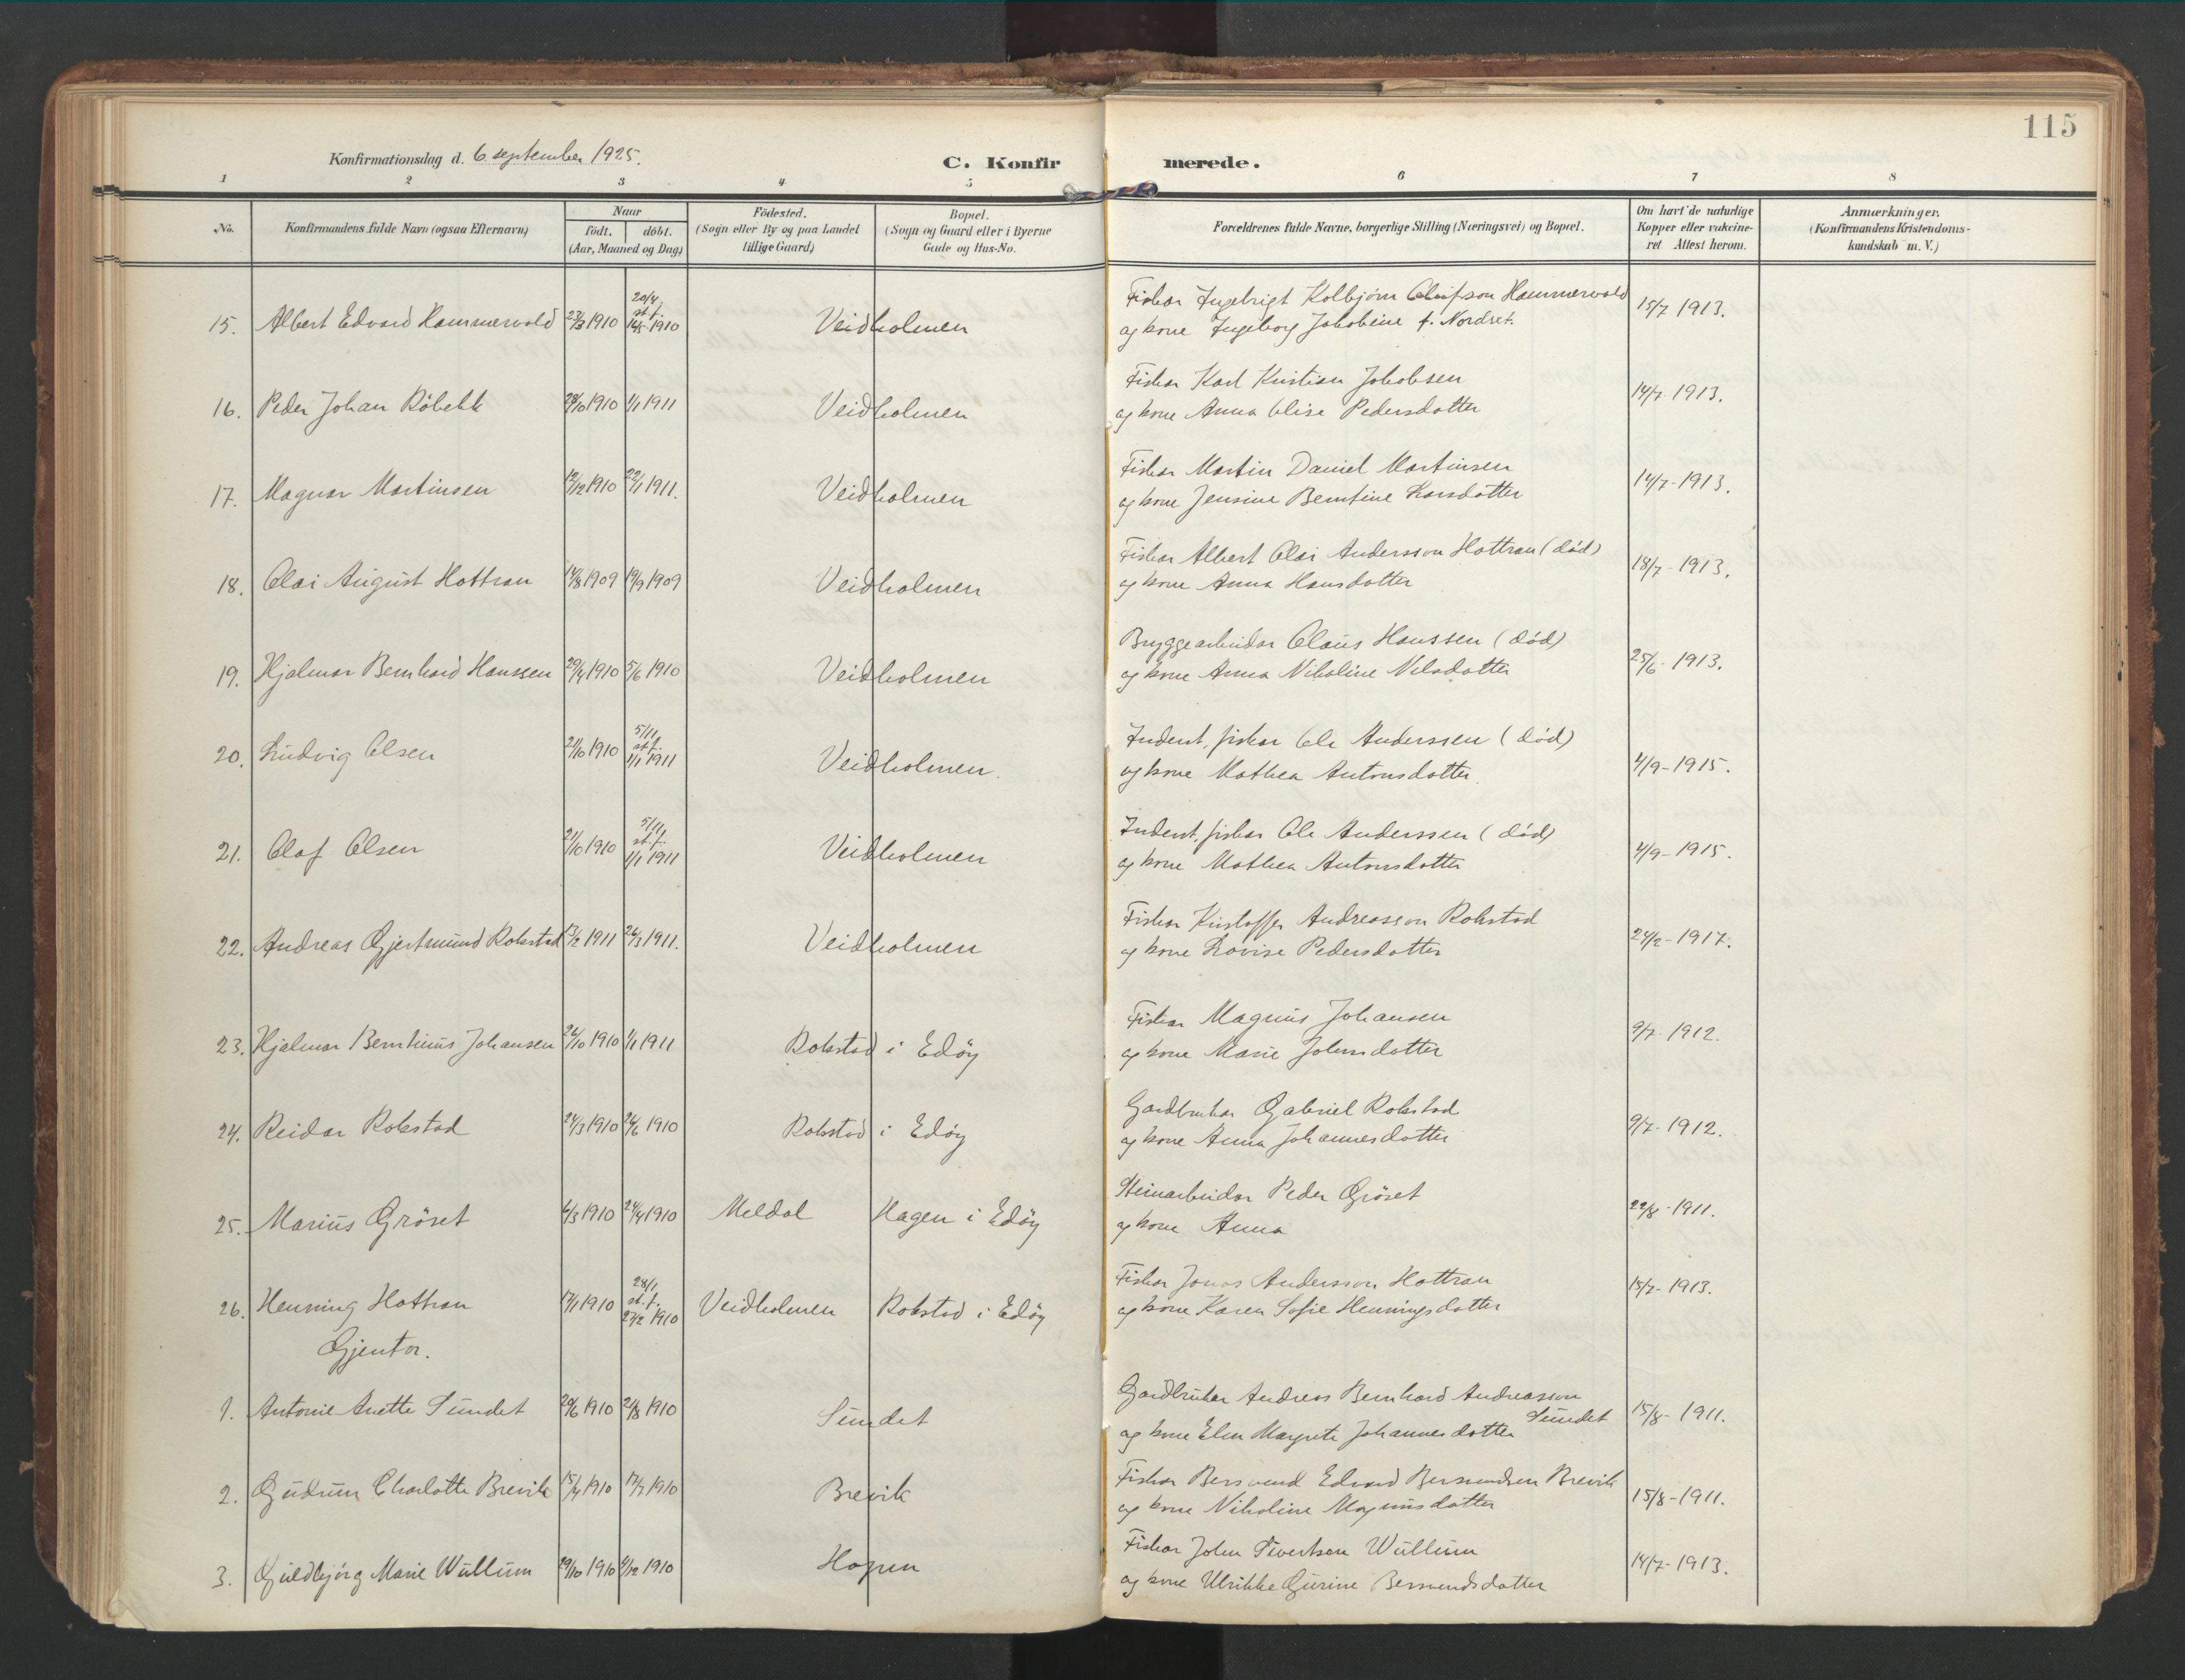 115
Konfirmationsdag d. 6 september 1925.
C. Konfirmerede.
1 2 3 4 5 6 7 8
No.
Konfirmandens fulde Navn (ogsaa Efternavn)
Naar
födt. döbt.
(Aar, Maaned og Dag)
Födested.
(Sogn eller By og paa Landet
tillige Gaard)
Bopæl.
(Sogn og Gaard eller i Byerne
Gade og Hus-No.
Forældrenes fulde Navne, borgerlige Stilling (Næringsvei) og Bopæl.
Om havt de naturlige
Kopper eller vakcine-
ret Attest herom.
Anmærkninger.
(Konfirmandens Kristendoms-
kundskab m. V.)
15. Albert Edvard Hammervold 23/3 1910 20/4. st. f. 16/5 1910 Veidholmen
Fiskar Ingebrigt Kolbjørn Olufson Hammervold
og kone Ingeborg Jakobine f. Nordset.
15/7 1913.
16. Peder Johan Röbekk 29/10 1910 1/1 1911 Veidholmen
Fiskar Karl Kristian Jakobsen
og kone Anna Elise Pedersdatter
14/7- 1913.
17. Magnar Martinsen 12/12 1910 22/1 1911. Veidholmen
Fiskar Martin Daniel Martinsen
og kone Jensine Berntine Larsdatter
14/7-1913.
18. Olai August Hottran 14/8 1909 19/9 1909 Veidholmen
Fiskar Albert Olai Andersson Hottran (död)
og kone Anna Hansdatter
18/7- 1913.
19. Hjalmar Bernhard Hanssen 29/4 1910 5/6 1910 Veidholmen
Bryggearbeidar Olaus Hanssen (död)
og kone Anna Nikoline Nilsdatter
25/6- 1913.
20. Ludvig Olsen 21/10 1910 5/11, st. f. 1/1 1911 Veidholmen.
Indent. fiskar Ole Anderssen (död)
og kone Mathea Antonsdatter
4/9-1915.
21. Olaf Olsen 21/10 1910 5/11, st. f. 1/1 1911 Veidholmen
Indent. fiskar Ole Anderssen (död)
og kone Mathea Antonsdatter
4/9-1915.
22. Andreas Gjertmund Rokstad 13/2 1911 26/3 1911. Veidholmen
Fiskar Kristoffer Andreasson Rokstad
og kone Lovise Pedersdatter
24/2-1917.
23. Hjalmar Berntinus Johansen 26/10 1910 1/1 1911 Rokstad i Edöy
Fiskar Magnus Johansen
og kone Marie Johnsdatter
9/7-1912.
24. Reidar Rokstad 24/3 1910 26/6 1910 Rokstad i Edöy
Gardbrukar Gabriel Rokstad
og kone Anna Johannesdatter
9/7-1912.
25. Marius Gröset 6/3 1910 24/4 1910 Meldal Hagen i Edöy
Steinarbeidar Peder Gröset
og kone Anna
22/8-1911.
26. Henning Hottran 17/1 1910 28/1 st. f. 27/2 1910 Veidholmen Rokstad i Edöy
Fiskar Jonas Andersson Hottran
og kone Karen Sofie Henningsdatter
15/7-1913.
Gjentor.
1. Antonie Anette Sundet 20/6 1910 21/8 1910 Sundet
Gardbrukar Andreas Bernhard Andreasson
Sundet
og kone Elen Margrete Johannesdatter
15/8-1911.
2. Gudrun Charlotte Brevik 15/4 1910 17/7 1910 Brevik
Fiskar Bersvend Edvard Bersvendsen Brevik
og kone Nikoline Magnusdatter
15/8-1911.
3. Guldbjörg Marie Wullum 29/10 1910 4/12 1910 Hopen
Fiskar John Sivertsen Wullum
og kone Ulrikke Gurine Bersvendsdatter
14/7-1913.